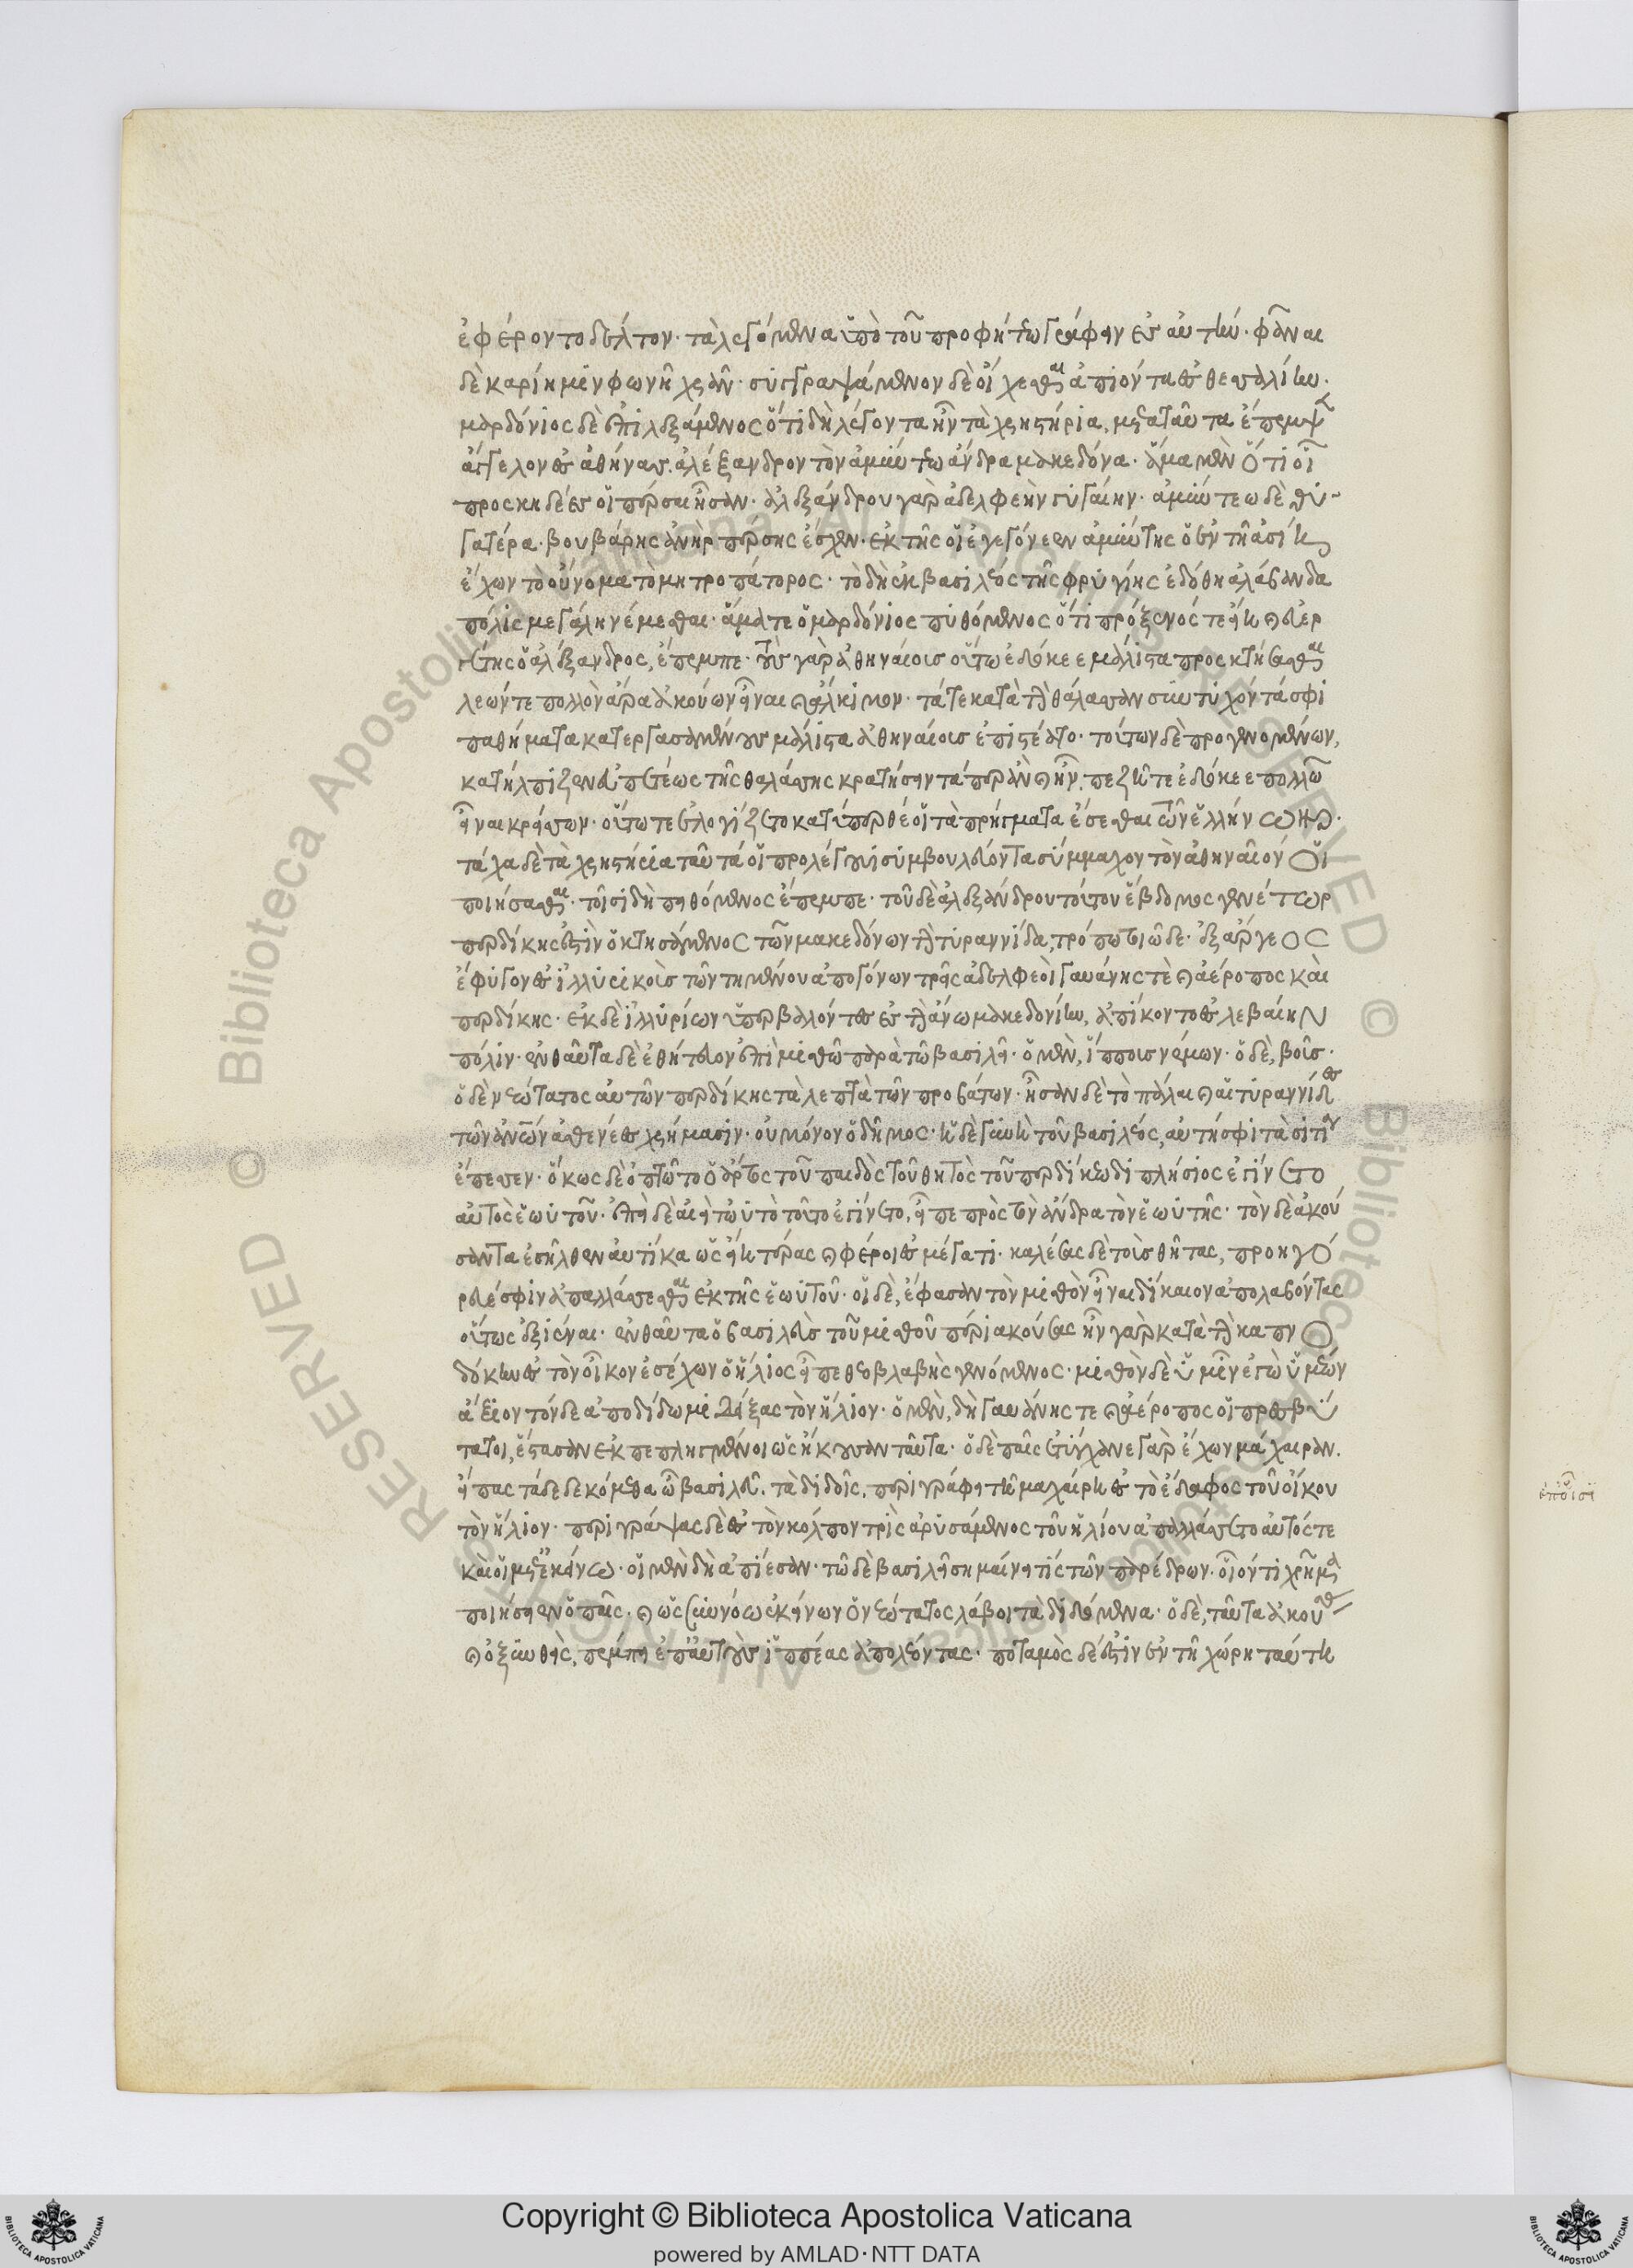 ἐφέροντο δέλτον· τὰ λεγόμενα ὑπὸ τοῦ προφήτεω γράφειν ἐς αὐτήν· φᾶναι
δὲ καρίη μιν φωνῆ χρᾶν· συγγραψάμενον δὲ οἴχεσθαι ἀπιόντα ἐς θεσσαλίην·
μαρδόνιος δὲ ἐπιλεξάμενος ὅτι δὴ λέγοντα ἦν τὰ χρηστήρια, μετὰ ταῦτα ἔπεμψε
ἄγγελον ἐς ἀθήνας. ἀλέξανδρον τὸν ἀμύντεω ἄνδρα μακεδόνα· ἅμα μὲν ὅτι οἱ
προσκηδέες οἱ πέρσαι ἦσαν· ἀλεξάνδρου γὰρ ἀδελφεὴν γυγαίην· ἀμύντεω δὲ θυ-
γατέρα· βουβάρης ἀνὴρ πέρσης ἔσχεν· ἐκ τῆς οἱ ἐγεγόνεεν ἀμύντης ὁ ἐν τῆ ἀσίη
ἔχων τὸ οὔνομα τὸ μητροπάτορος· τῶ δὴ ἐκ βασιλέος τῆς φρυγίης ἐδόθη ἀλάβανδα
πόλις μεγάλη νέμεσθαι· ἅμα τε ὁ μαρδόνιος πυθόμενος ὅτι πρόξεινός τε εἴη καὶ εὐερ
γέτης ὁ ἀλέξανδρος, ἔπεμπε· τοὺς γὰρ ἀθηναίους οὕτω ἐδόκεε μάλιστα προσκτήσεσθαι
λεών τε πολλὸν ἄρα ἀκούων εἶναι καὶ ἄλκιμον· τά τε κατὰ τὴν θάλασσαν συντυχόντα σφι
παθήματα κατεργασαμένους μάλιστα ἀθηναίους ἐπιστέατο· τούτων δὲ προγενομένων,
κατήλπιζεν εὐπετέως τῆς θαλάσσης κρατήσειν τάπερ ἂν καὶ ἦν. πεζῆ τε ἐδόκεε πολλῶ
εἶναι κρείσσων· οὕτω τε ἐλογίζετο κατύπερθέ οἱ τὰ πρήγματα ἔσεσθαι τῶν ἑλληνικῶν·
τάχα δὲ τὰ χρηστήρια ταῦτά οἱ προλέγοι συμβουλεύοντα σύμμαχον τὸν ἀθηναῖον οἱ
ποιήσασθαι· τοῖσι δὴ πειθόμενος ἔπεμπε· τοῦ δὲ ἀλεξάνδρου τούτου ἕβδομος γενέτωρ
περδίκης ἐστὶν ὁ κτησάμενος τῶν μακεδόνων τὴν τυραννίδα, τρόπω τοιῶδε· ἐξ ἄργεος
ἔφυγον ἐς ἰλλυριοὺς τῶν τημένου ἀπογόνων τρεῖς ἀδελφεοὶ γαυάνης τὲ καὶ ἀέροπος καὶ
περδίκης· ἐκ δὲ ἰλλυρίων ὑπερβαλόντες ἐς τὴν ἄνω μακεδονίην, ἀπίκοντο ἐς λεβαίην
πόλιν· ἐνθαῦτα δὲ ἐθήτευον ἐπὶ μισθῶ παρὰ τῶ βασιλεῖ· ὁ μὲν, ἵππους νέμων· ὁ δὲ, βοῦς·
ὁ δὲ νεώτατος αὐτῶν περδίκης τὰ λεπτὰ τῶν προβάτων· ἦσαν δὲ τὸ πάλαι καὶ αἱ τυραννίδες
τῶν ἀνθρώπων ἀσθενέες χρήμασιν· οὐ μόνον ὁ δῆμος· ἡ δὲ γυνὴ τοῦ βασιλέος, αὐτή σφι τὰ σιτία
ἔπεσσεν· ὅκως δὲ ὀπτῶτο ὁ ἄρτος τοῦ παιδὸς τοῦ θητὸς τοῦ περδίκεω διπλήσιος ἐγίνετο
αὐτὸς ἑωυτοῦ· ἐπεὶ δὲ αἰεὶ τὠυτὸ τοῦτο ἐγίνετο, εἶπε πρὸς τὸν ἄνδρα τὸν ἑωυτῆς· τὸν δὲ ἀκού
σαντα ἐσῆλθεν αὐτίκα ὡς εἴη τέρας καὶ φέροι ἐς μέγα τι· καλέσας δὲ τοὺς θῆτας, προηγό
ρευέ σφιν ἀπαλλάσσεσθαι ἐκ τῆς ἑωυτοῦ· οἱ δὲ, ἔφασαν τὸν μισθὸν εἶναι δίκαιον ἀπολαβόντας
οὕτως ἐξιέναι· ἐνθαῦτα ὁ βασιλεὺς τοῦ μισθοῦ περιακούσας ἦν γὰρ κατὰ τὴν καπνο
δόκην ἐς τὸν οἶκον ἐσέχων ὁ ἥλιος εἶπε θεοβλαβὴς γενόμενος· μισθὸν δὲ ὑμῖν ἐγὼ ὑμέων
ἄξιον τόνδε ἀποδίδωμι δείξας τὸν ἥλιον· ὁ μὲν, δὴ γαυάνης τε καὶ ἀέροπος οἱ πρεσβύ
τατοι, ἕστασαν ἐκπεπληγμένοι ὡς ἤκουσαν ταῦτα· ὁ δὲ παῖς ἐτύγχανε γὰρ ἔχων μάχαιραν.
εἴπας τάδε δεκόμεθα ὦ βασιλεῦ. τὰ διδοῖς, περιγράφει τῆ μαχαίρη ἐς τὸ ἔδαφος τοῦ οἴκου
τὸν ἥλιον· περιγράψας δὲ ἐς τὸν κόλπον τρὶς ἀρυσάμενος τοῦ ἡλίου ἀπαλλάσσετο αὐτός τε
καὶ οἱ μετ' ἐκείνου· οἱ μὲν δὴ ἀπίεσαν· τῶ δὲ βασιλεῖ σημαίνει τίς τῶν παρέδρων· οἷόν τι χρῆμα
ποιήσειεν ὁ παῖς· καὶ ὡς σὺν νόω ἐκείνων ὁ νεώτατος λάβοι τὰ διδόμενα· ὁ δὲ, ταῦτα ἀκούσας
καὶ ὀξυνθεὶς, πέμπει ἐπ' αὐτοὺς ἱππέας ἀπολέοντας· ποταμὸς δέ ἐστιν ἐν τῆ χώρη ταύτη
© Biblioteca Apostolica Vaticana ALL RIGHTS RESERVED
Copyright © Biblioteca Apostolica Vaticana
powered by AMLAD·NTT DATA
BIBLIOTECA APOSTOLICA VATICANA
BIBLIOTECA APOSTOLICA VATICANA